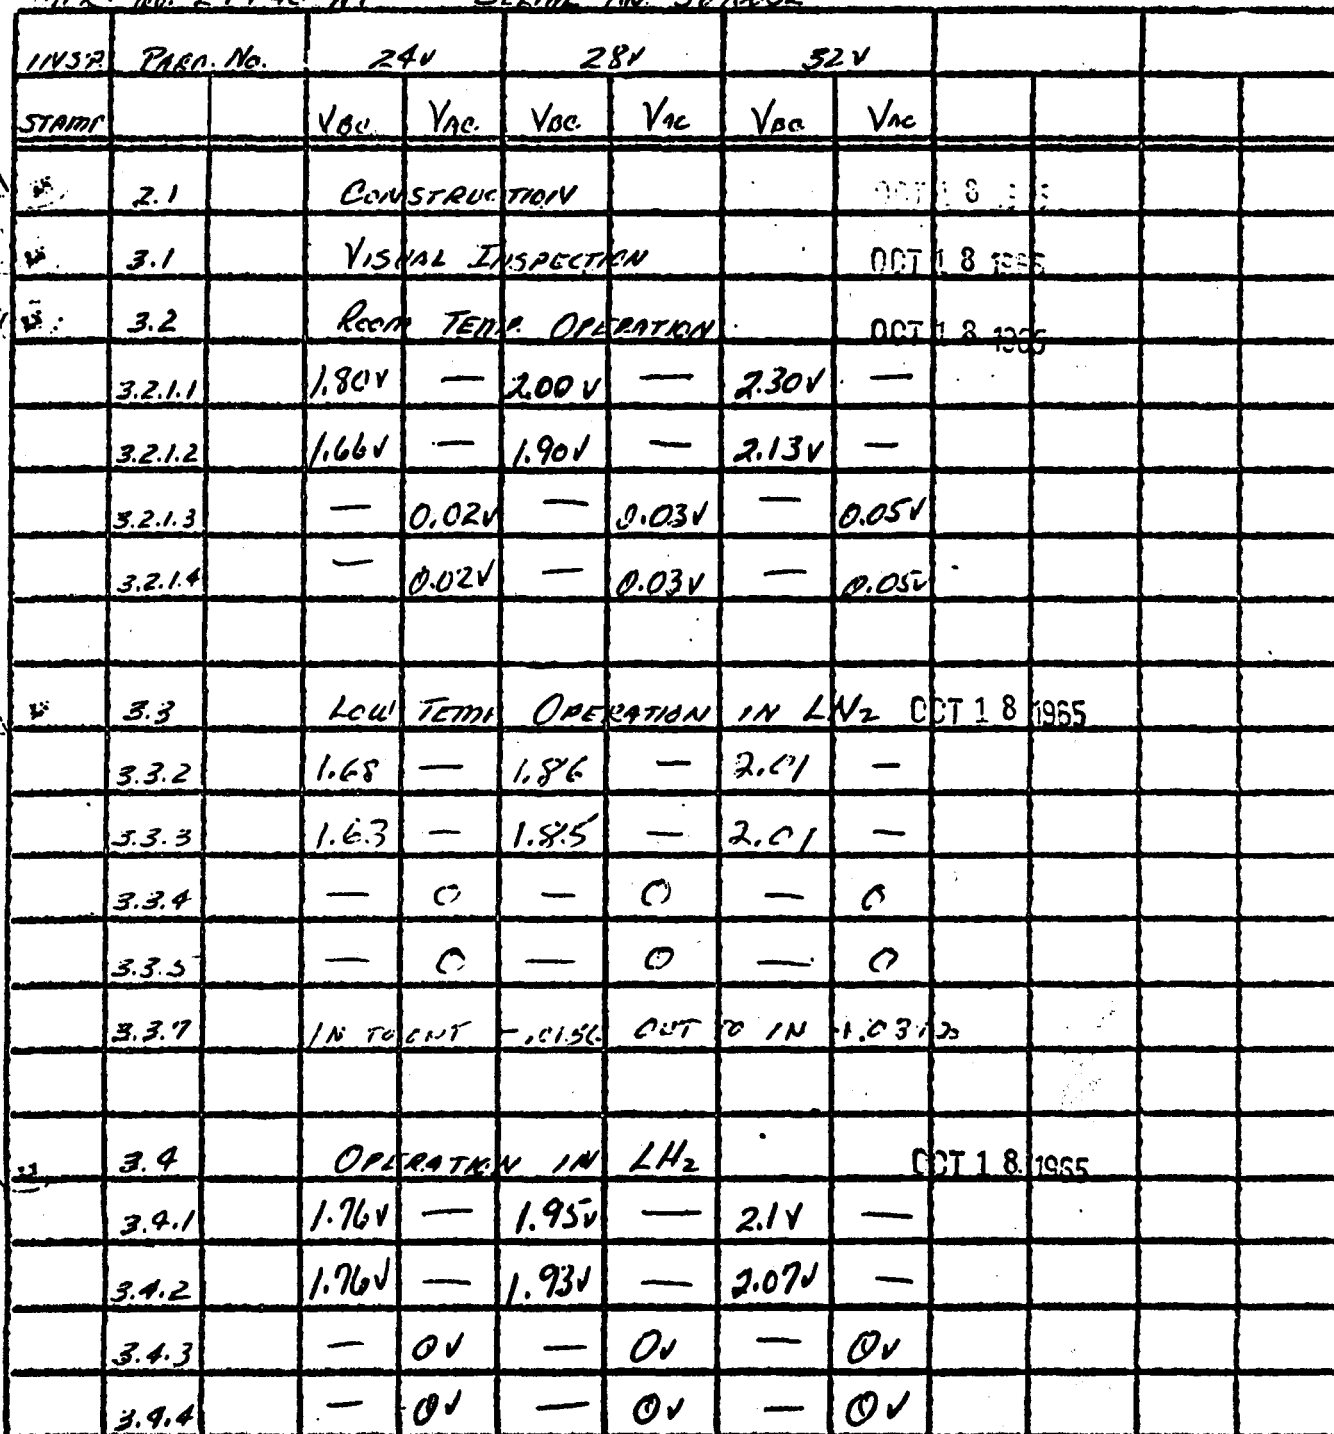 INSP. PARA. No. 24V 28V 32V
STAMP VBC. VAC. VBC. VAC VBC. VAC
2.1 CONSTRUCTION OCT 18
3.1 VISUAL INSPECTION OCT 18 1965
3.2 ROOM TEMP. OPERATION OCT 18 1965
3.2.1.1 1.80V — 2.00V — 2.30V —
3.2.1.2 1.66V — 1.90V — 2.13V —
3.2.1.3 — 0.02V — 0.03V — 0.05V
3.2.1.4 — 0.02V — 0.03V — 0.05V
3.3 LOW TEMP OPERATION IN LN2 OCT 18 1965
3.3.2 1.68 — 1.86 — 2.01 —
3.3.3 1.63 — 1.85 — 2.01 —
3.3.4 — 0 — 0 — 0
3.3.5 — 0 — 0 — 0
3.3.7 IN TO OUT OUT TO IN
3.4 OPERATION IN LH2 OCT 18 1965
3.4.1 1.76V — 1.95V — 2.1V —
3.4.2 1.76V — 1.93V — 2.07V —
3.4.3 — 0V — 0V — 0V
3.4.4 — 0V — 0V — 0V